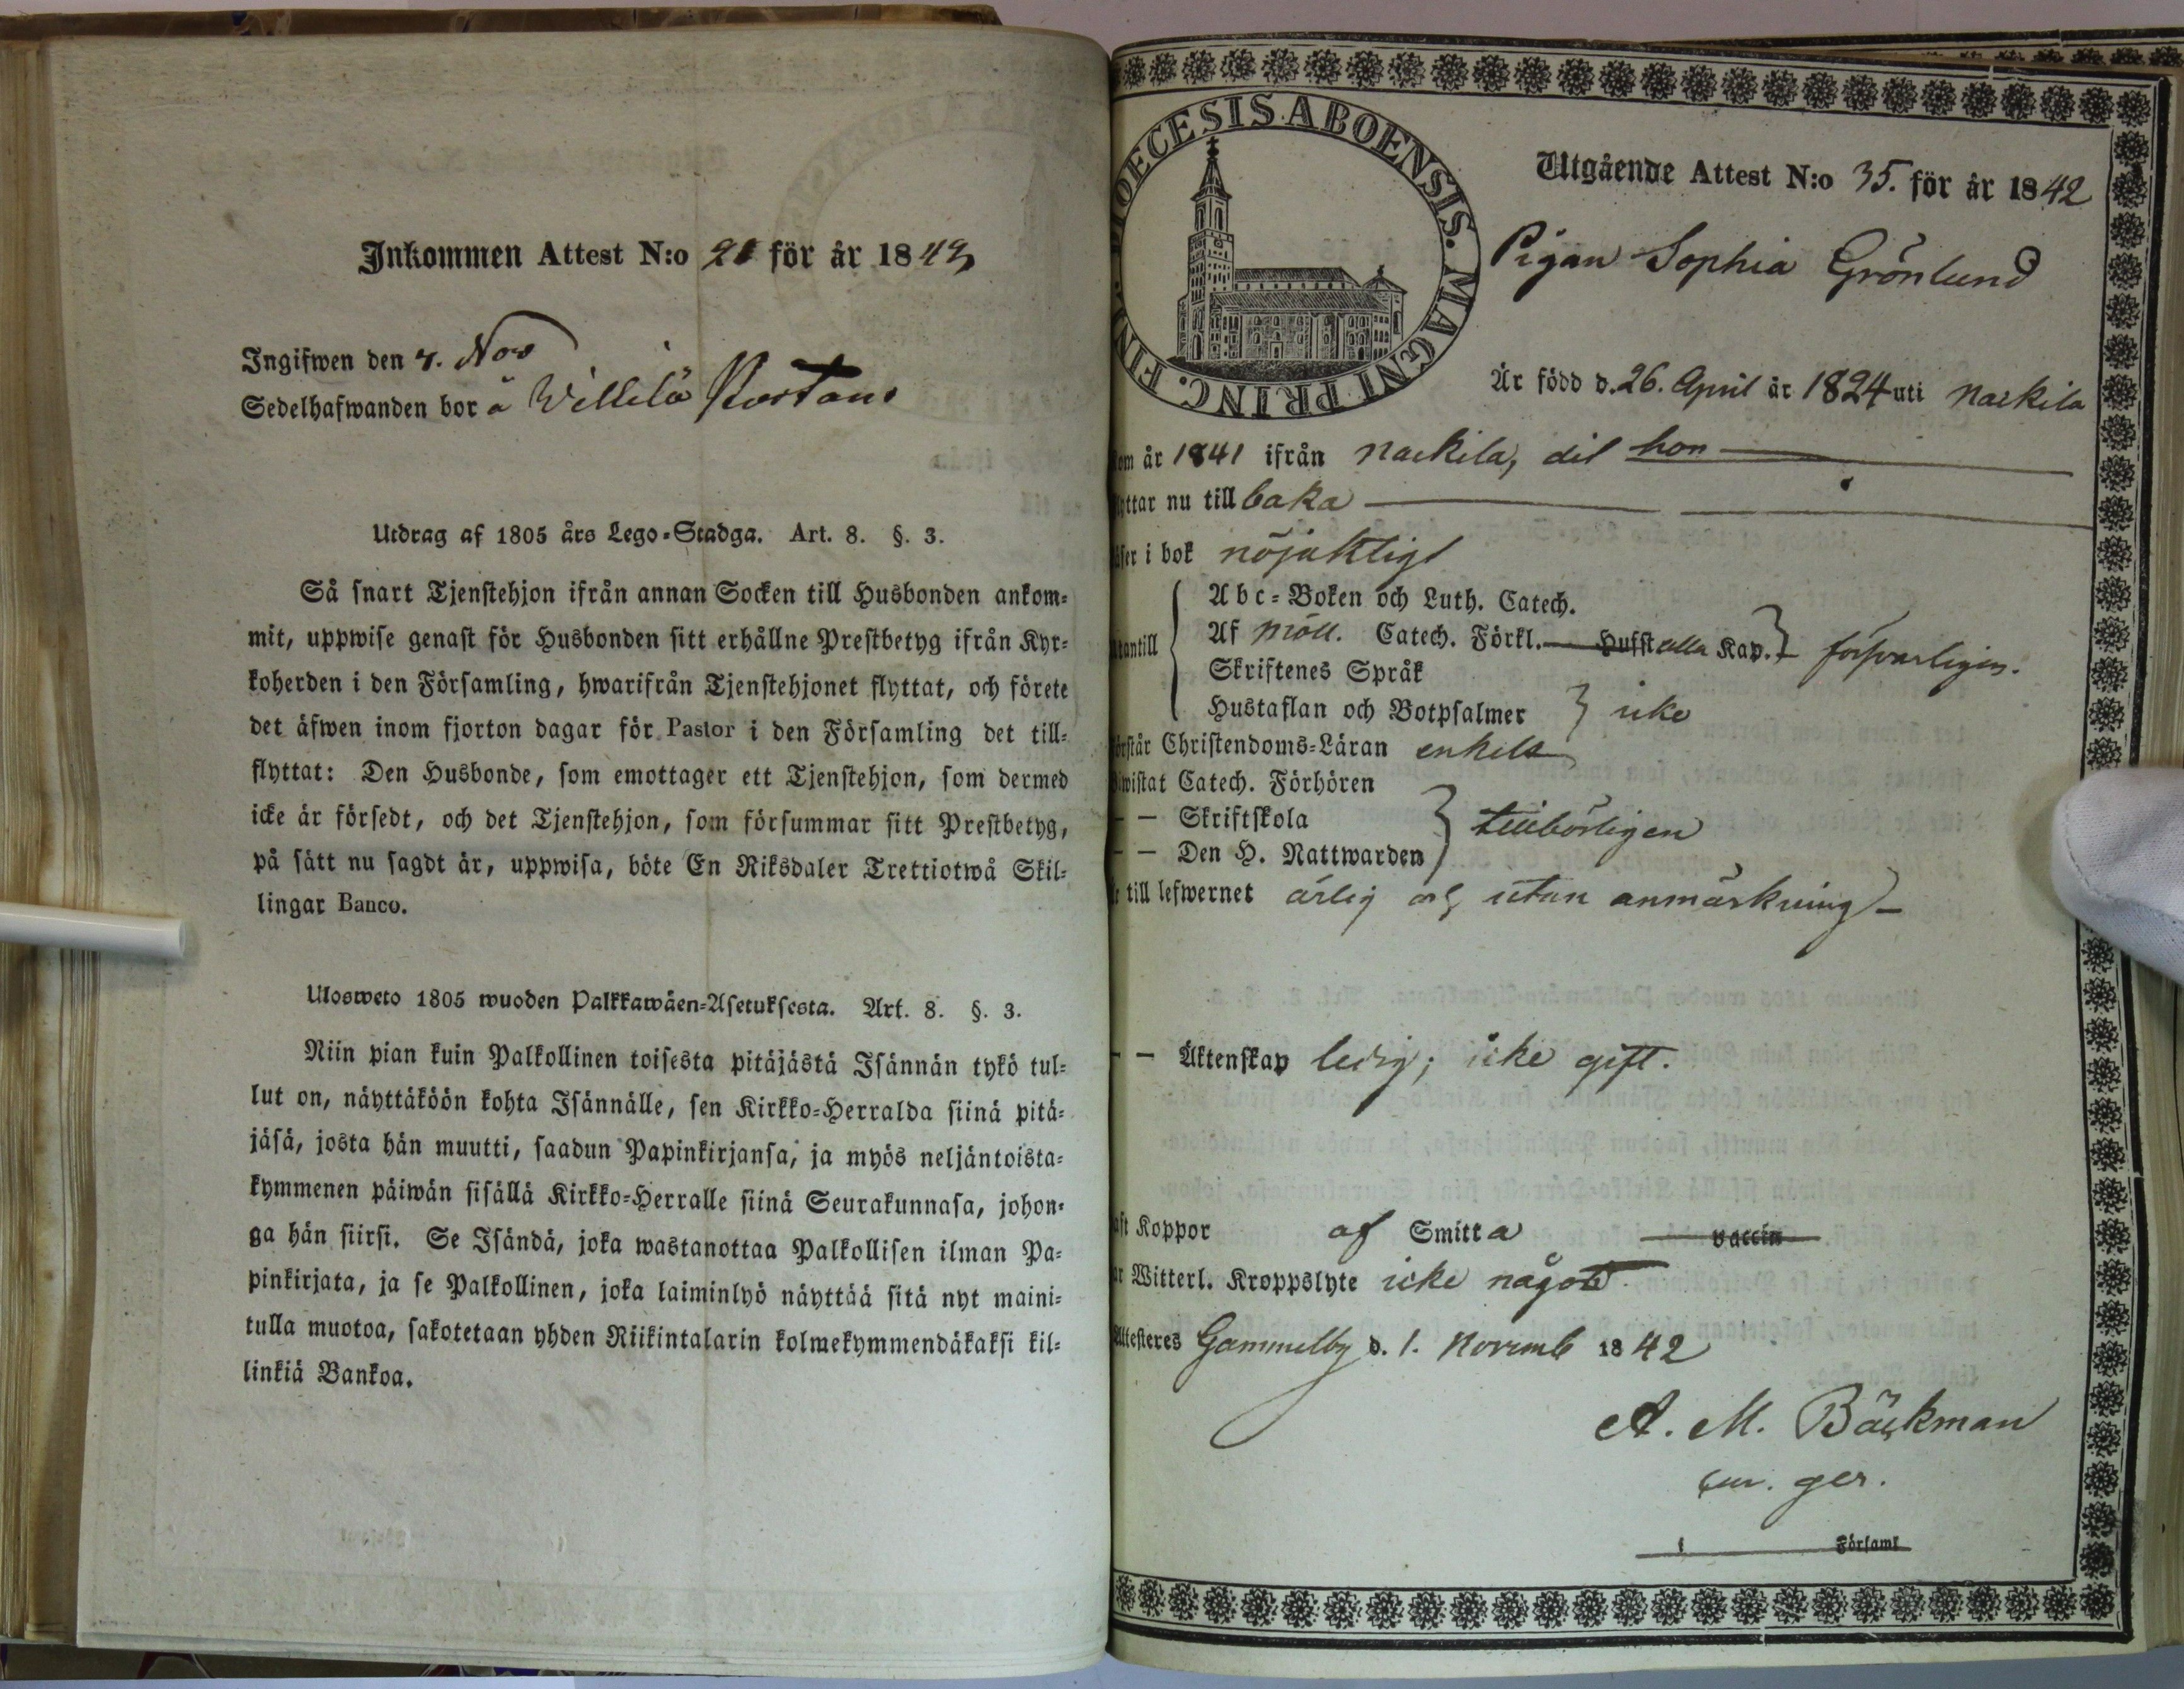 Inkommen Attest N:o för år 1842
Ingifwen den 4. Nov
Sedelhafwanden bor å Willilä
Utdrag af 1805 års Lego-Stadga. Art. 8. §. 3.
Så snart Tjenstehjon ifrån annan Socken till Husbonden ankom-
mit, uppwise genast för Husbonden sitt erhållne Prestbetyg ifrån Kyr-
koherden i den Församling, hwarifrån Tjenstehjonet flyttat, och förete
det äfwen inom fjorton dagar för Pastor i den Församling det till-
flyttat: Den Husbonde, som emottager ett Tjenstehjon, som dermed
icke är försedt, och det Tjenstehjon, som försummar sitt Prestbetyg,
på sätt nu sagdt är, uppwisa, böte En Riksdaler Trettiotwå Skil-
lingar Banco.
Ulosweto 1805 wuoden Palkkawäen-Asetuksesta. Art. 8. §. 3.
Niin pian kuin Palkollinen toisesta pitäjästä Isännän tykö tul-
lut on, näyttäköön kohta Isännälle, sen Kirkko-Herralda siinä pitä-
jäsä, josta hän muutti, saadun Papinkirjansa, ja myös neljäntoista-
kymmenen päiwän sisällä Kirkko-Herralle siinä Seurakunnasa, johon-
ga hän siirsi. Se Isändä, joka wastanottaa Palkollisen ilman Pa-
pinkirjata, ja se Palkollinen, joka laiminlyö näyttää sitä nyt maini-
tulla muotoa, sakotetaan yhden Riikintalarin kolmekymmendäkaksi kil-
linkiä Bankoa.
DIOECESIS ABOENSIS. MAGNI PRINC. FIN
Utgående Attest N:o 35. för år 1842
Pigan Sophia Grönlund
Är född d. 26. April år 1824 uti Nackila
om år 1841 ifrån Nackila, dit hon
yttar nu tillbaka
äser i bok nöjaktigt
Abc-Boken och Luth. Catech.
utantill Af Möll. Catech. Förkl. Hufst alla Kap. försvarligen.
Skriftenes Språk
Hustaflan och Botpsalmer icke
örstår Christendoms-Läran enkelt
wistat Catech. Förhören
— — Skriftskola tillbörligen
— — Den H. Nattwarden
till lefwernet ärlig och utan anmärkning
— — Äktenskap ledig; icke gift.
aft Koppor af Smitta vaccin
ar Witterl. Kroppslyte icke något
Attesteres Gammelby d. 1. Novemb 1842
A. M. Bäckman
cur. ger.
i Församl